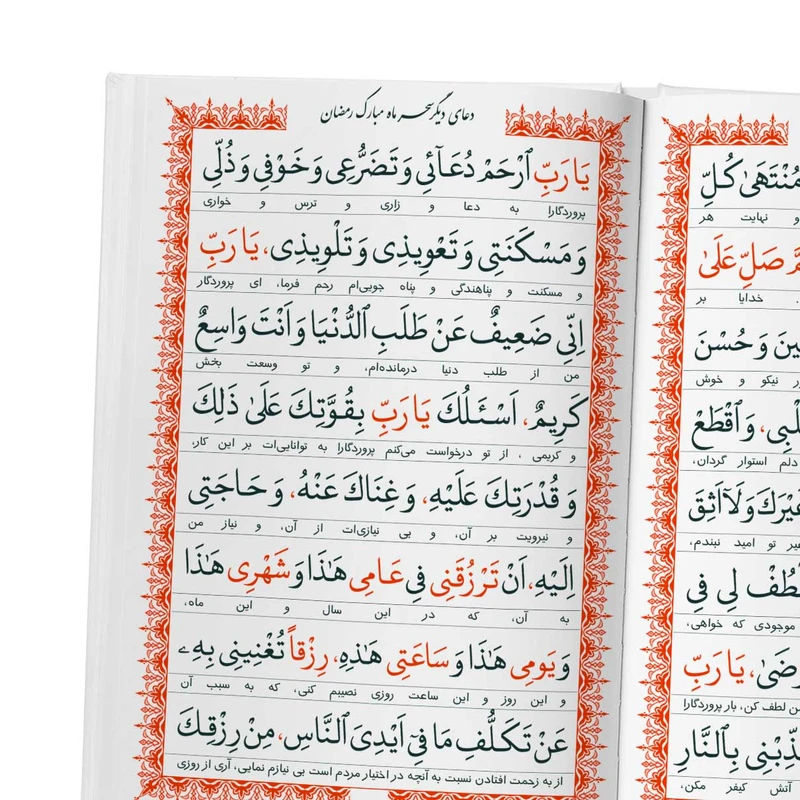 دعای دیگر سحر ماه مبارک رمضان
یَا رَبِّ ٱرْحَمْ دُعَآئِی وَ تَضَرُّعِی وَ خَوْفِی وَ ذُلِّی
پروردگارا به دعا و زاری و ترس و خواری
وَ مَسْکَنَتِی وَ تَعْوِیذِی وَ تَلْوِیذِی، یَا رَبِّ
و مسکنت و پناهندگی و پناه جویی‌ام رحم فرما، ای پروردگار
اِنِّی ضَعِیفٌ عَنْ طَلَبِ ٱلدُّنْیَا وَ اَنْتَ وَاسِعٌ
من از طلب دنیا درمانده‌ام، و تو وسعت بخش
کَرِیمٌ، اَسْئَلُكَ یَا رَبِّ بِقُوَّتِكَ عَلَیٰ ذَلِكَ
و کریمی ، از تو درخواست می‌کنم پروردگارا به توانایی‌ات بر این کار،
وَ قُدْرَتِكَ عَلَیْهِ، وَ غِنَاكَ عَنْهُ، وَ حَاجَتِی
و نیرویت بر آن، و بی نیازی‌ات از آن، و نیاز من
اِلَیْهِ، اَنْ تَرْزُقَنِی فِی عَامِی هَـٰذَا وَ شَهْرِی هَـٰذَا
به آن، که در این سال و این ماه،
وَ یَومِی هَـٰذَا وَ سَاعَتِی هَـٰذِهِ، رِزْقاً تُغْنِینِی بِهِ
و این روز و این ساعت روزی نصیبم کنی، که به سبب آن
عَنْ تَکَلُّفِ مَا فِیٓ اَیْدِیَ ٱلنَّاسِ، مِنْ رِزْقِكَ
از به زحمت افتادن نسبت به آنچه در اختیار مردم است بی نیازم نمایی، آری از روزی
مُنْتَهَیٰ کُلِّ
و نهایت هر
صَلِّ عَلَیٰ
خدایا بر
وَ حُسْنَ
نیکو و خوش
وَ ٱقْطَعْ
دلم استوار گردان،
وَ لَآ اَثِقَ
تو امید نبندم،
لِی فِی
موجودی که خواهی،
یَا رَبِّ
لطف کن، بار پروردگارا
بِٱلنَّارِ
آتش کیفر مکن،